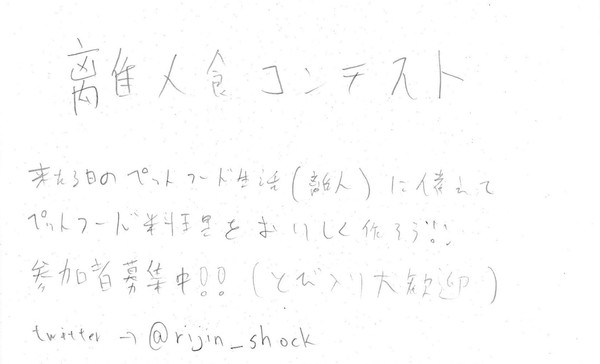 離人食コンテスト
来たる日のペットフード生活(離人)に備えて
ペットフード料理をおいしく作ろう!!
参加者募集中!!(とび入り大歓迎)
twitter→@rijin_shock